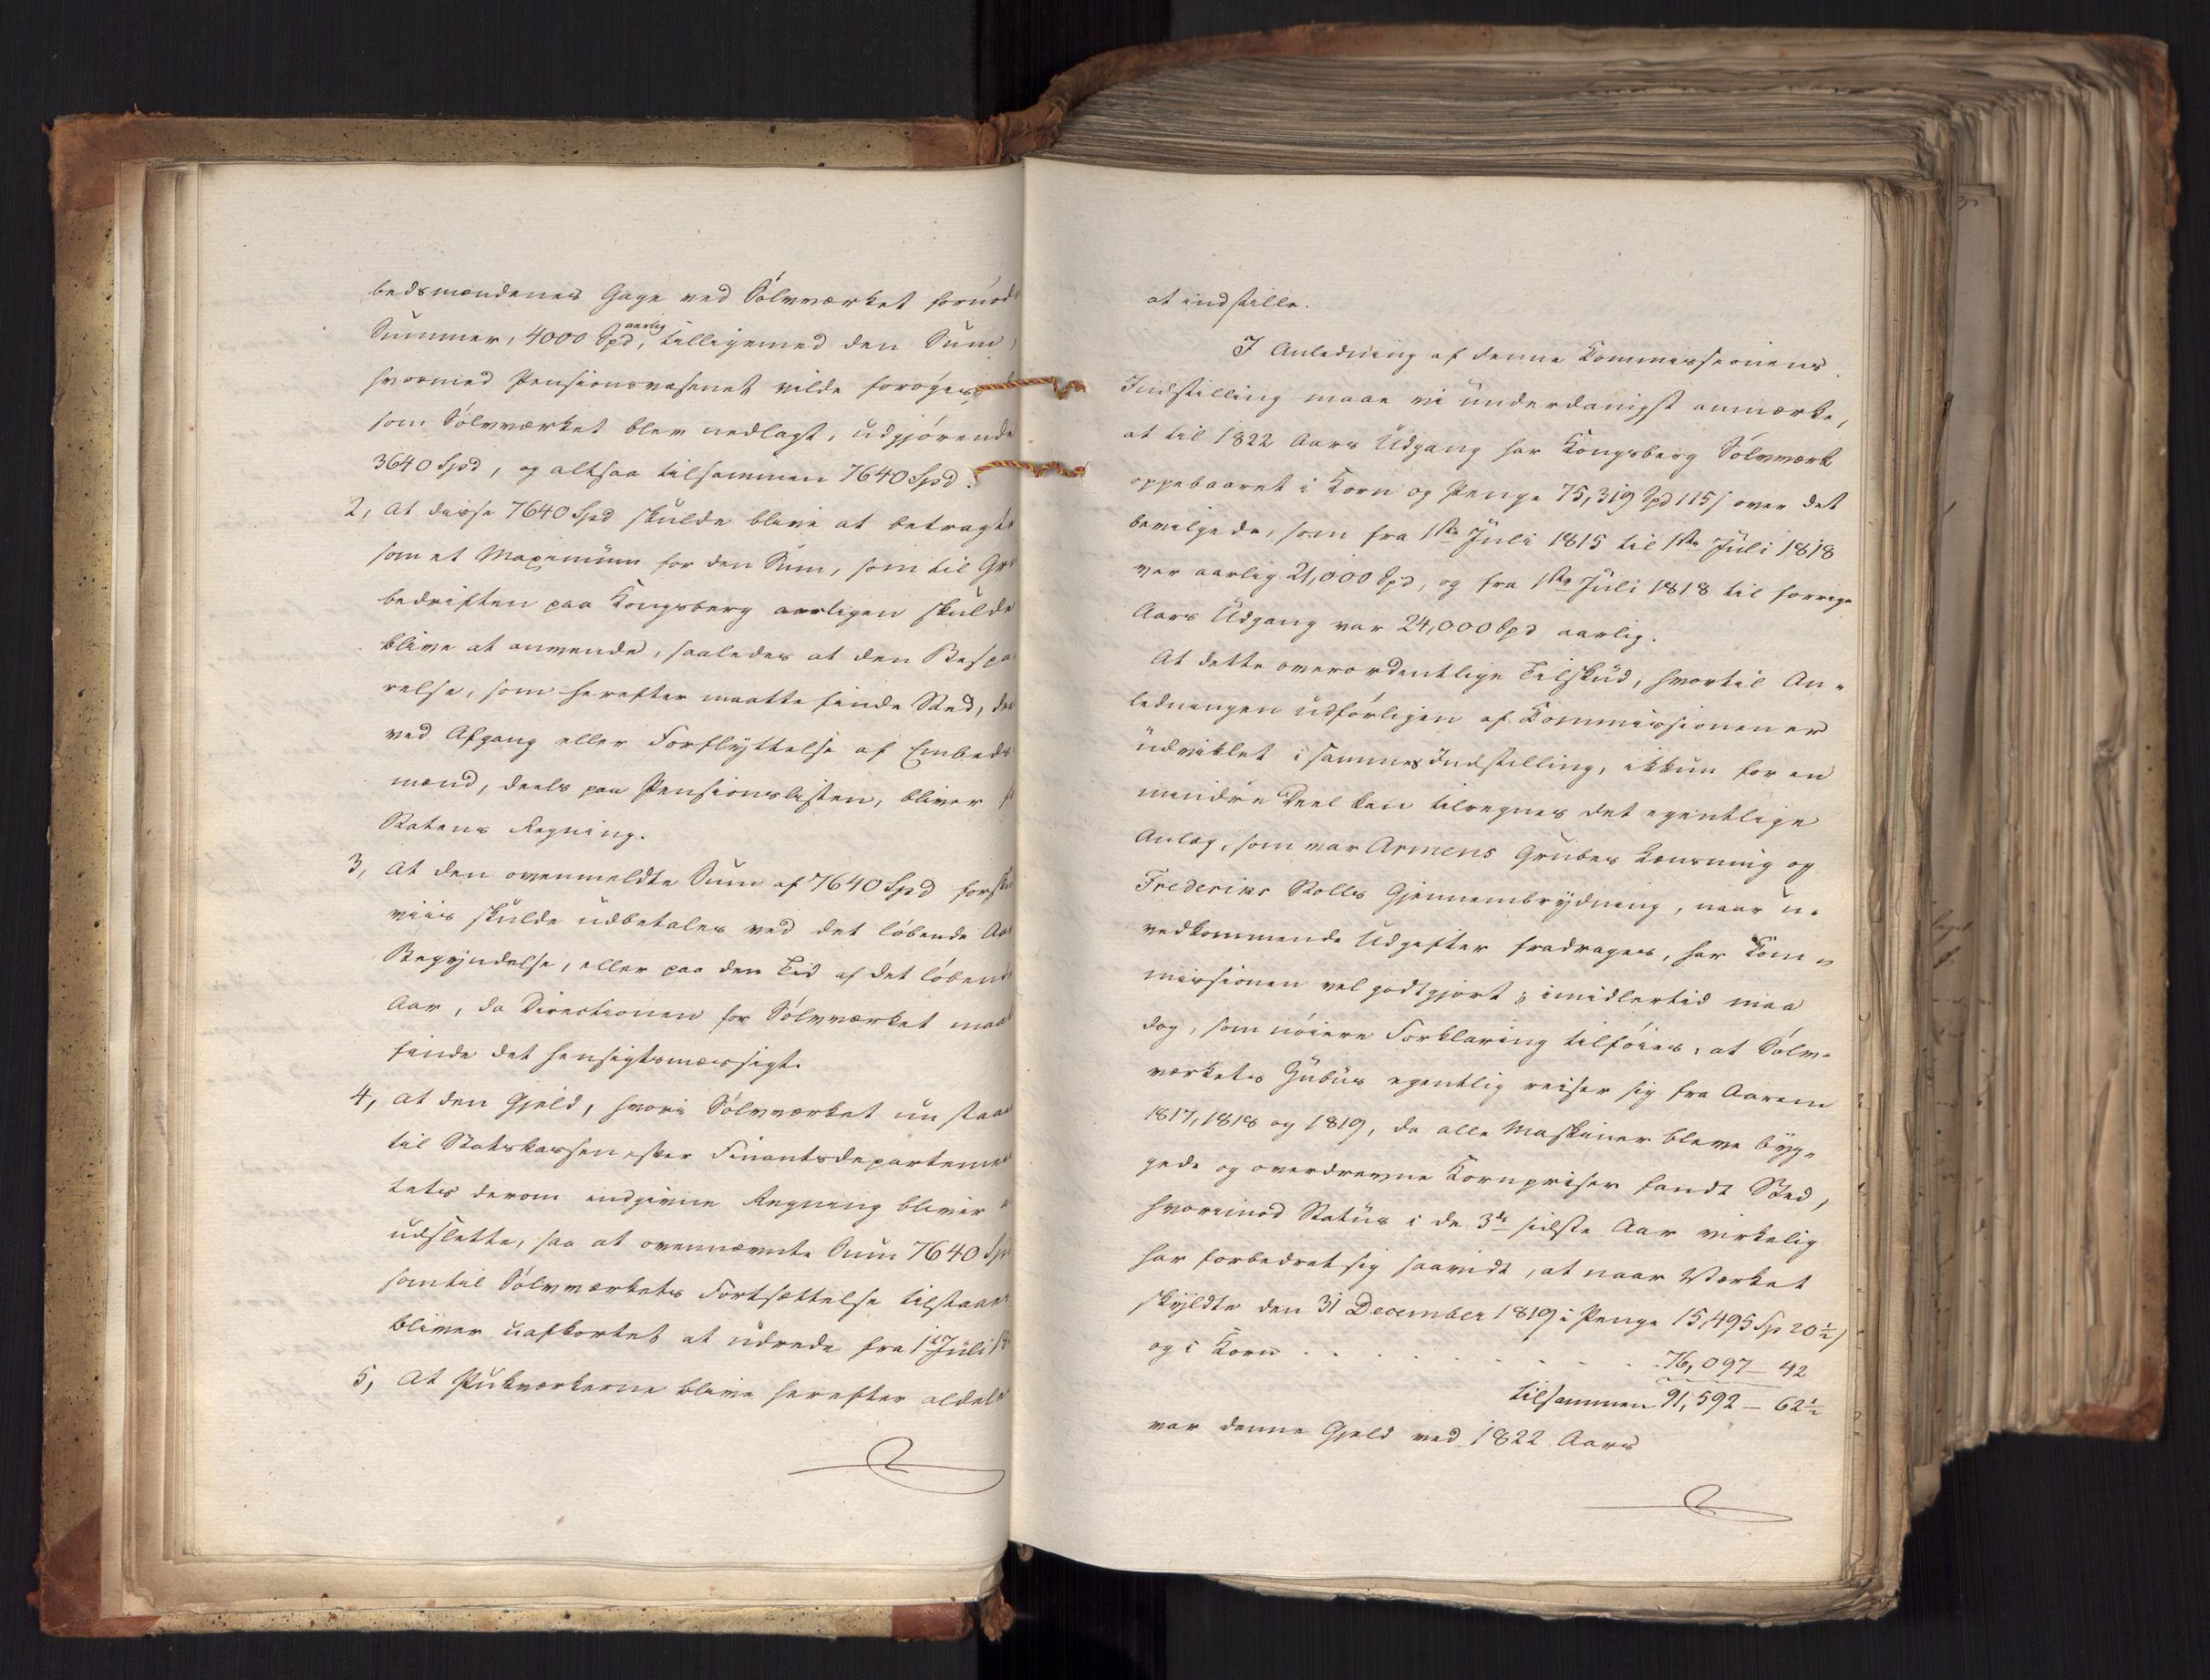 bedsmændenes Gage ved Sølvværket fornød
Summer, 4000 Spd, aarlig tilligemed den Sum,
hvormed Pensionsvæsenet vilde forøges
som Sølvværket blev nedlagt, udgjørende
3640 Spd, og altsaa tilsammen 7640 Spd.
2, at disse 7640 Spd skulde blive at betragte
som et Maximum for den Sum, som til Gru
bedriften paa Kongsberg aarligen skulde
blive at anvende, saaledes at den Bespa
relse, som herefter maatte finde Sted, de
ved Afgang eller Forflyttelse af Embeds
mænd, deels paa Pensionslisten, bliver f
Statens Regning.
3, at den ovenmeldte Sum af 7640 Spd forsku
viis skulde udbetales ved det løbende Aar
Begyndelse, eller paa den Tid af det løbend
Aar, da Directionen for Sølvværket maat
finde det hensigtsmæssigt.
4, at den Gjeld, hvori Sølvværket nu staae
til Statskassen efter Finantsdepartemen
tets derom indgivne Regning bliver a
udslette, saa at ovennævnte Sum 7640 Sp
som til Sølvværkets Fortsættelse tilstaaes
bliver uafkortet at udrede fra 1 Juli 18
5, At Pukværkerne blive herefter aldele
at indstille.
I Anledning af denne Kommissionens
Indstilling maae vi underdanigst anmærke,
at til 1822 Aars Udgang har Kongsberg Sølvværk
oppebaaret i Korn og Penge 75,319 Spd 115 s over det
bevilgede, som fra 1ste Juli 1815 til 1ste Juli 1818
var aarlig 21,000 Spd, og fra 1ste Juli 1818 til forrige
Aars Udgang var 24,000 Spd aarlig.
At dette overordentlige Tilskud, hvortil An-
ledningen udførligen af Kommissionen er
udviklet i sammes Indstilling, ikkun for en
mindre Deel kan tilregnes det egentlige
Anlæg, som var Armens Grubes Lænsning og
Frederiks Stolls Gjennembrydning, naar u-
vedkommende Udgifter fradrages, har Kom-
missionen vel godtgjort; imidlertid maa
dog, som nøiere Forklaring tilføies, at Sølv-
værkets Gubus egentlig reiser sig fra Aarene
1817, 1818 og 1819, da alle Maskiner bleve byg-
gede og overdrevne Kornpriser fandt Sted,
hvorimod Status i de 3de sidste Aar virkelig
har forbedret sig saavidt, at naar Værket
skyldte den 31 December 1819 i Penge 15,495 Sp 20½ s
og i Korn . . . . . . . . 76,097 – 42
tilsammen 91,592 – 62½
var denne Gjeld ved 1822 Aars